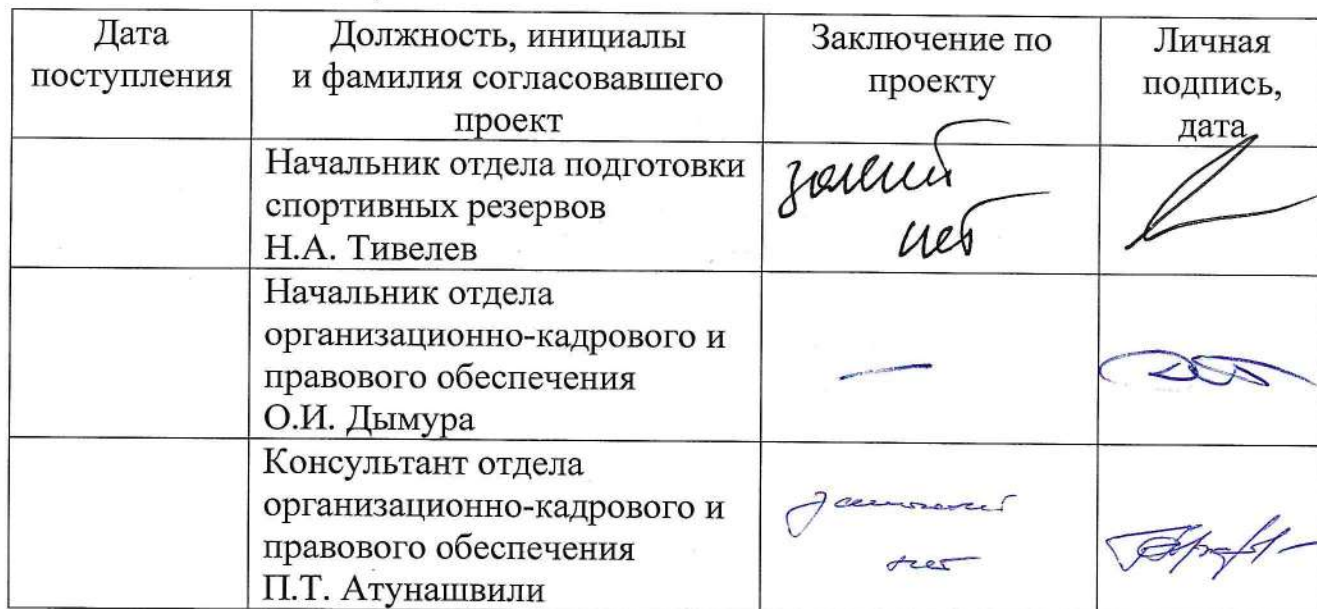 Дата
поступления
Должность, инициалы
и фамилия согласовавшего
проект
Заключение по
проекту
Личная
подпись,
дата
Начальник отдела подготовки
спортивных резервов
Н.А. Тивелев
нет
Начальник отдела
организационно-кадрового и
правового обеспечения
О.И. Дымура
—
Консультант отдела
организационно-кадрового и
правового обеспечения
П.Т. Атунашвили
нет